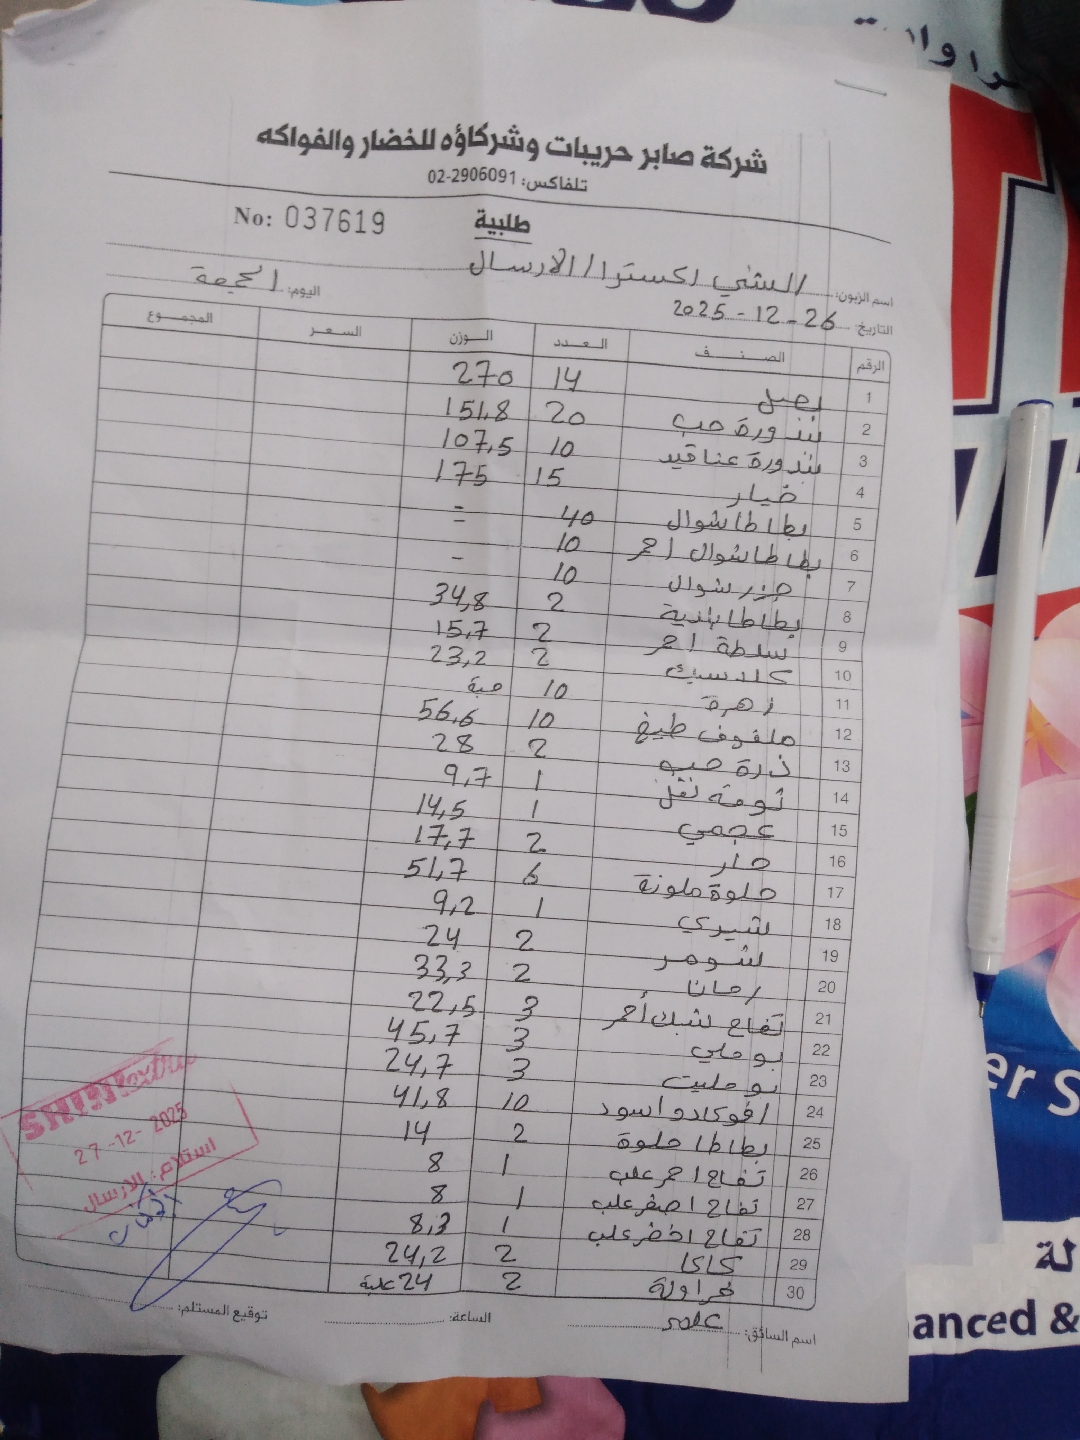 شركة صابر حريبات وشركاؤه للخضار والفواكه
تلفاكس: 02-2906091
طلبية
No: 037619
اسم الزبون: الشني اكسترا/الارسال
التاريخ: 26-12-2025 اليوم: الجمعة
الرقم الصنف العدد الوزن السعر المجموع
1 بصل 14 270
2 بندورة حب 20 151,8
3 بندورة عناقيد 10 107,5
4 خيار 15 175
5 بطاطا شوال 40 =
6 بطاطا شوال احمر 10
7 جزر شوال 10 -
8 بطاطا بلدية 2 34,8
9 سلطة احمر 2 15,7
10 كلاسيك 2 23,2
11 زهرة 10 حبة
12 ملفوف طبخ 10 56,6
13 ذرة حب 2 28
14 ثومة نقل 1 9,7
15 عجمي 1 14,5
16 حار 2 17,7
17 حلوة ملونة 6 51,7
18 شيري 1 9,2
19 شومر 2 24
20 رمان 2 33,3
21 تفاح شبك أحمر 3 22,5
22 بوملي 3 45,7
23 بومليت 3 24,7
24 افوكادو اسود 10 41,8
25 بطاطا حلوة 2 14
26 تفاح احمر علب 1 8
27 تفاح اصفر علب 1 8
28 تفاح اخضر علب 1 8,3
29 كاكا 2 24,2
30 فراولة 2 24 علبة
اسم السائق: عامر الساعة: توقيع المستلم:
SHINI extra
27-12-2025
استلام: الارسال
راوا
er S
لة
anced &